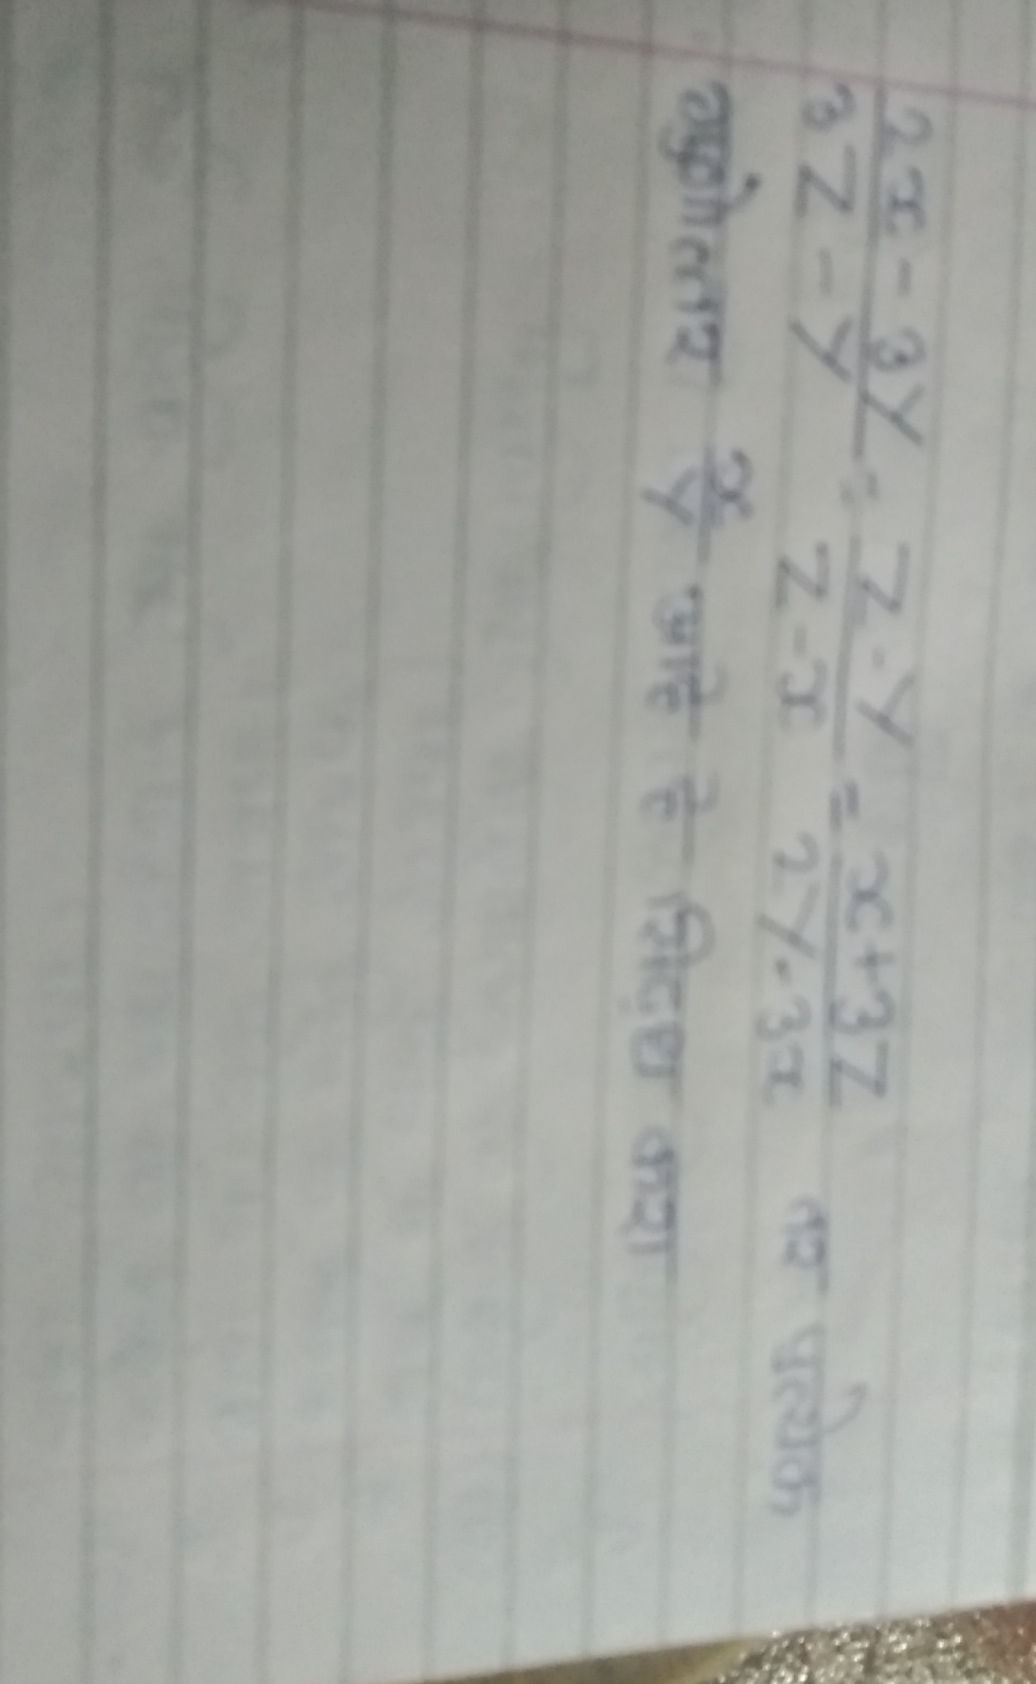 2x - 3y / 3z - y = z - y / z - x = x + 3z / 2y - 3x तर प्रत्येक
गुणोत्तर x/y आहे हे सिद्ध करा